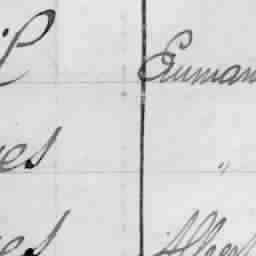 il Emman
es "
es Albert